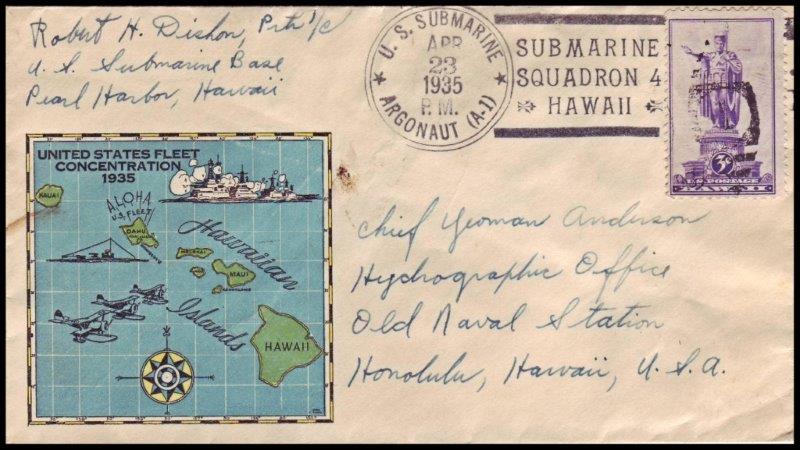 Robert H. Dishon, Prtr 1/c
U. S. Submarine Base
Pearl Harbor, Hawaii
U. S. SUBMARINE
APR
23
1935
P.M.
ARGONAUT (A-1)
SUBMARINE
SQUADRON 4
HAWAII
3¢
U.S. POSTAGE
HAWAII
UNITED STATES FLEET
CONCENTRATION
1935
KAUAI
ALOHA
U.S. FLEET
OAHU
MOLOKAI
MAUI
HAWAII
Hawaiian
Islands
Chief Yeoman Anderson
Hydrographic Office
Old Naval Station
Honolulu, Hawaii, U.S.A.